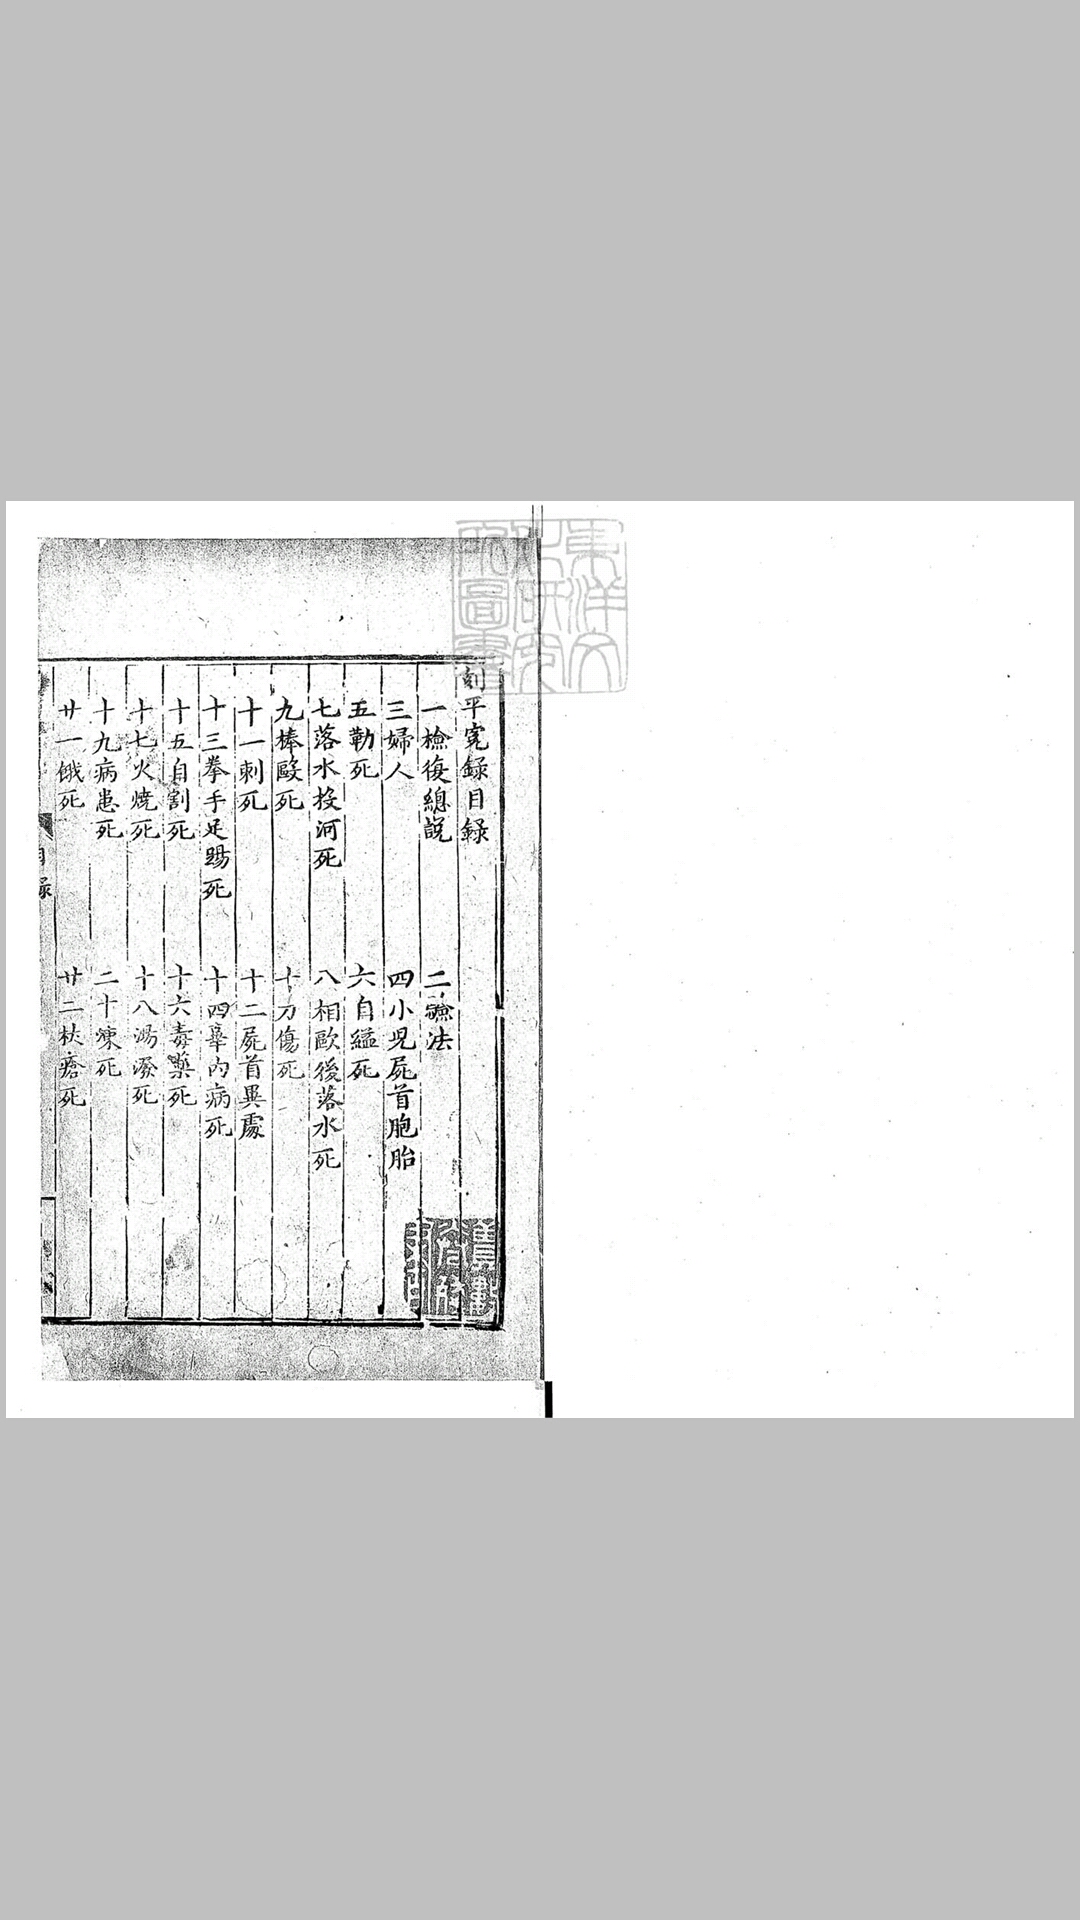 刻平寃録目録
一檢復總說
二驗法
三婦人
四小児屍首胞胎
五勒死
六自縊死
七落水投河死
八相歐後落水死
九棒毆死
十刀傷死
十一刺死
十二屍首異處
十三拳手足踢死
十四辜内病死
十五自割死
十六毒藥死
十七火燒死
十八湯潑死
十九病患死
二十凍死
廿一餓死
廿二杖瘡死
目録
東洋文
化研究
所圖書